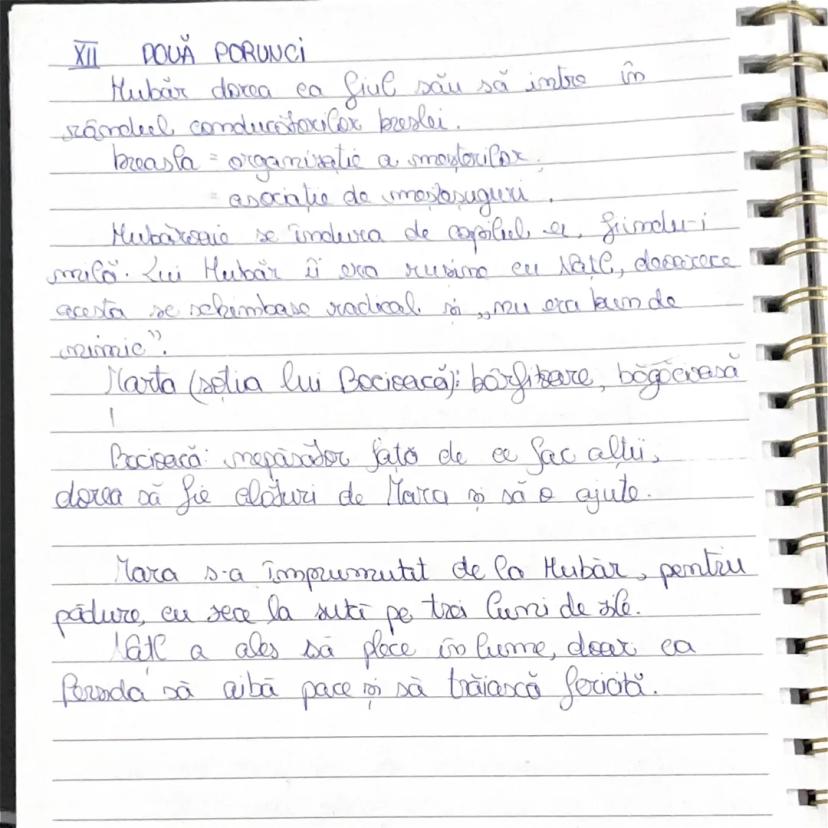 XII DOUĂ PORUNCI
Hubăr dorea ca fiul său să intre în
rândul conducătorilor breslei.
breasla = organizație a meșterilor,
= asociație de meșteșuguri.
Hubăroaie se îndura de copilul ei, fiindu-i
milă. Lui Hubăr îi era rușine cu Națl, deoarece
acesta se schimbase radical și „nu era bun de
nimic”.
Marta (soția lui Bocioacă): bârfitoare, băgăcioasă
Bocioacă: nepăsător față de ce fac alții,
dorea să fie alături de Mara și să o ajute.
Mara s-a împrumutat de la Hubăr, pentru
pădure, cu zece la sută pe trei luni de zile.
Națl a ales să plece în lume, doar ca
Persida să aibă pace și să trăiască fericită.